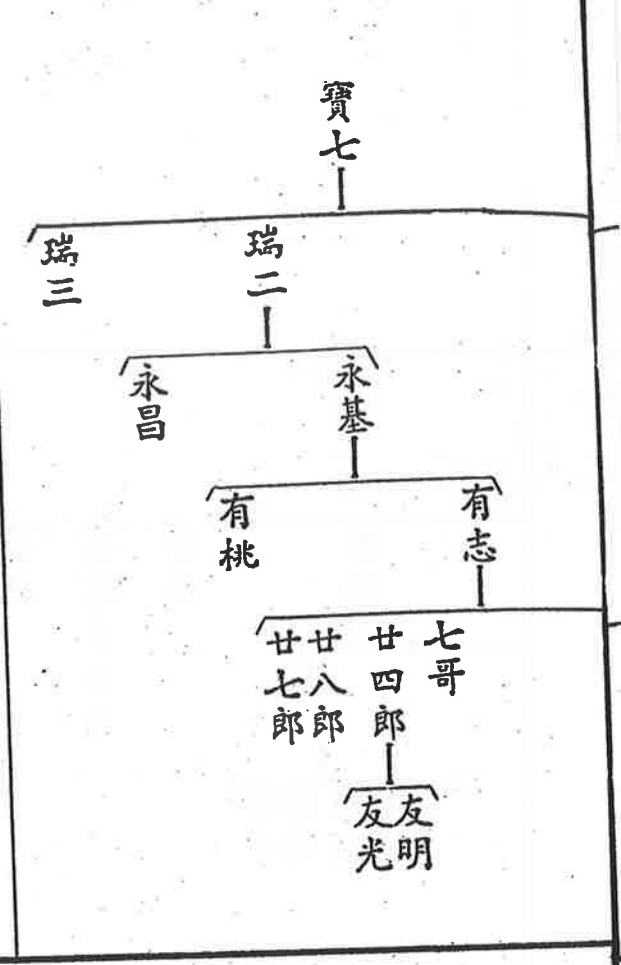 寶七
瑞二
瑞三
永基
永昌
有志
有桃
七哥
廿四郎
廿八郎
廿七郎
友明
友光